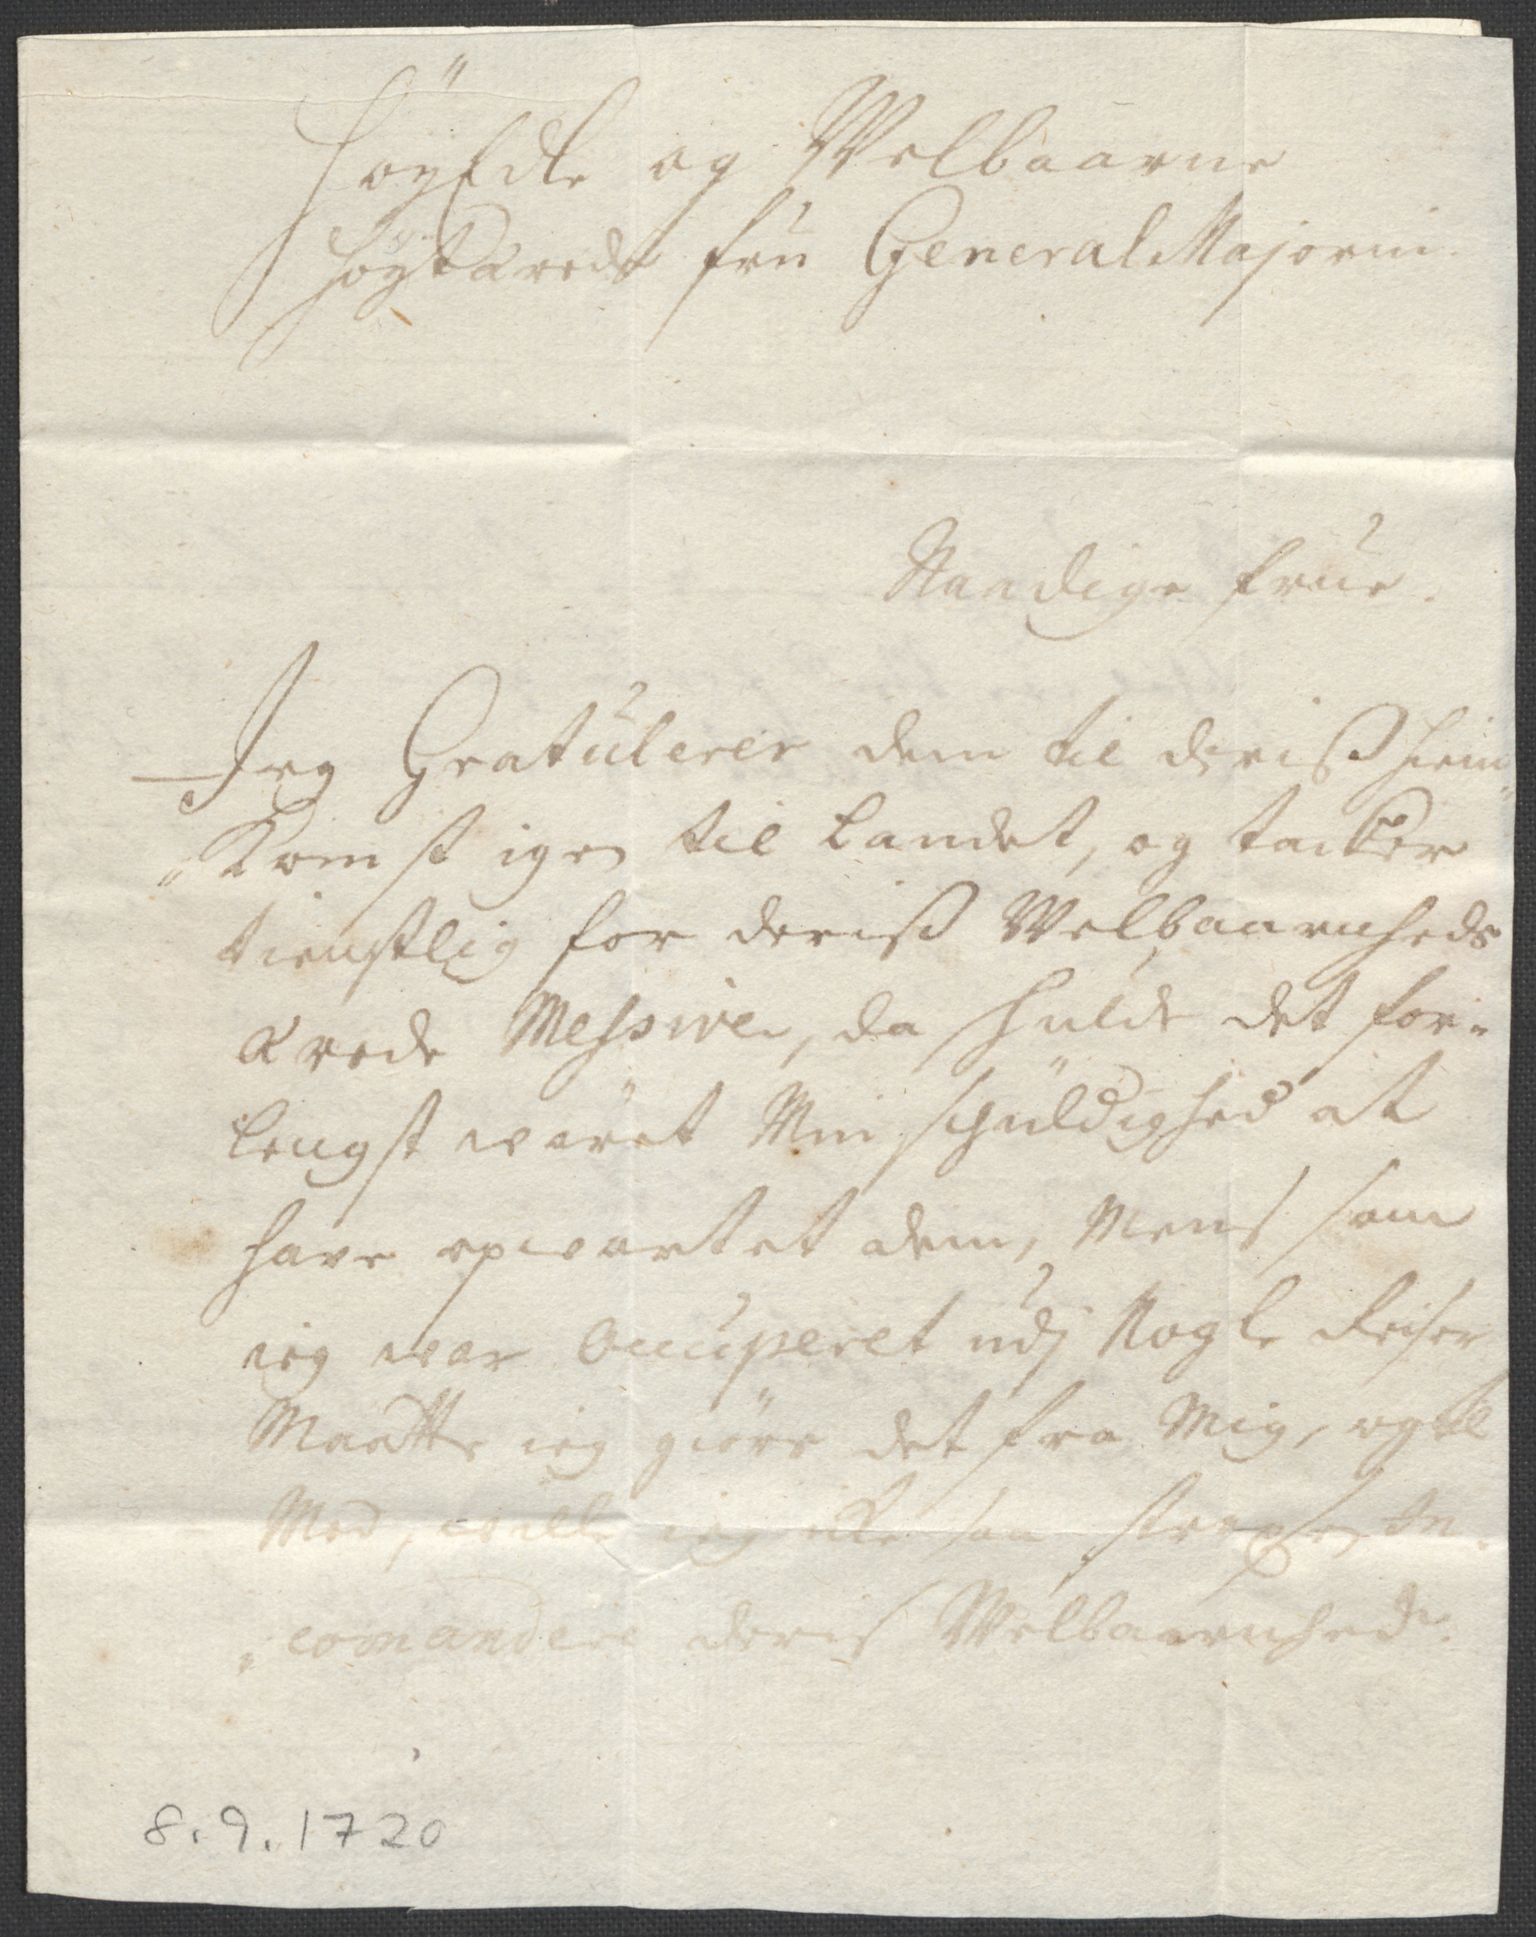 HöyEdle og Welbaarne
Høytærede frü General Majorin.
Naadige früe.
Jeg Gratülerer dem til deriß hiem,,
,,Komst igen til Landet, og tacker
tienstlig for deriß Welbaarenheds
ærede Messive, da skulde det for-
Lengst wæret Min schüldighed at
have opvartet dem, Mens som
ieg war Occuperet udj Nogle Reiser
Maatte ieg giøre det fra Mig, og til
Med, wille ieg icke saa strax in
,,comandere deris Welbaarenhed.
8.9.1720